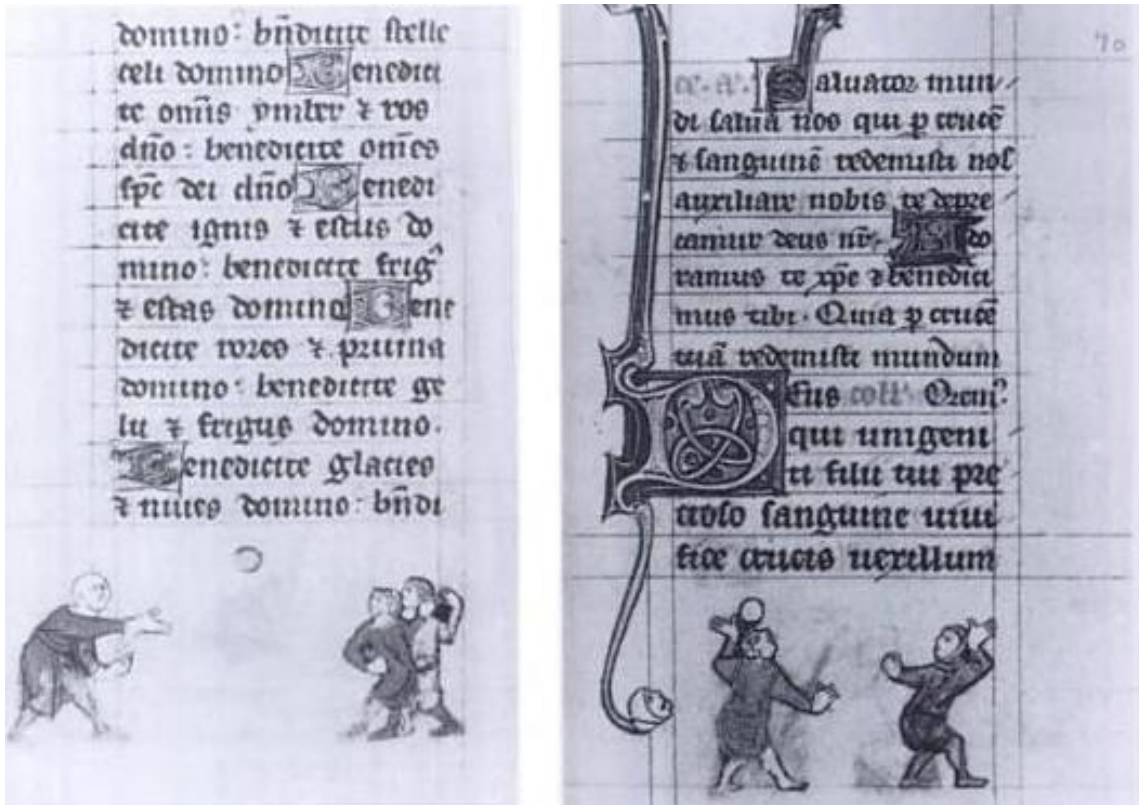 domino: bn̄dicite stelle
celi domino Benedici
te om̄is ymber ⁊ ros
dn̄o: benedicite om̄es
sp̄c dei dn̄o Benedi
cite ignis ⁊ estus do
mino: benedicite frig᷒
⁊ estas domino Bene
dicite rores ⁊ pruina
domino: benedicite ge
lu ⁊ frigus domino.
Benedicite glacies
⁊ niues domino: bn̄di
70
Saluator mun
di salua nos qui p crucē
⁊ sanguinē redemisti nos
auxiliare nobis te depre
camur deus nr̄. Ado
ramus te xp̄e ⁊ benedici
mus tibi. Quia p crucē
tuā redemisti mundum
Deus coll' Orem᷒
qui unigeni
ti filii tui pre
cioso sanguine uiui
fice crucis uexillum